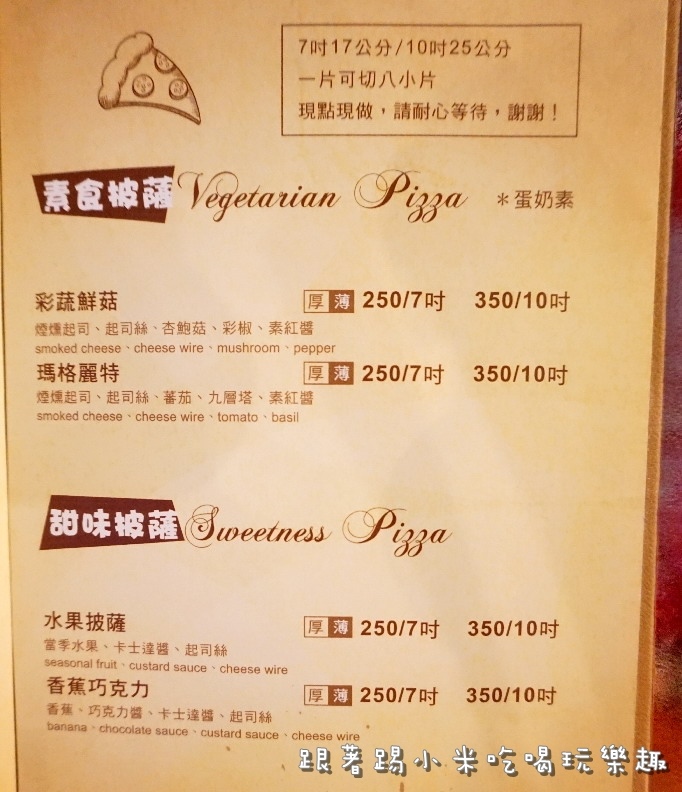 7吋17公分/10吋25公分
一片可切八小片
現點現做，請耐心等待，謝謝！
素食披薩 Vegetarian Pizza ＊蛋奶素
彩蔬鮮菇 厚 薄 250/7吋 350/10吋
煙燻起司、起司絲、杏鮑菇、彩椒、素紅醬
smoked cheese、cheese wire、mushroom、pepper
瑪格麗特 厚 薄 250/7吋 350/10吋
煙燻起司、起司絲、蕃茄、九層塔、素紅醬
smoked cheese、cheese wire、tomato、basil
甜味披薩 Sweetness Pizza
水果披薩 厚 薄 250/7吋 350/10吋
當季水果、卡士達醬、起司絲
seasonal fruit、custard sauce、cheese wire
香蕉巧克力 厚 薄 250/7吋 350/10吋
香蕉、巧克力醬、卡士達醬、起司絲
banana、chocolate sauce、custard sauce、cheese wire
跟著踢小米吃喝玩樂趣